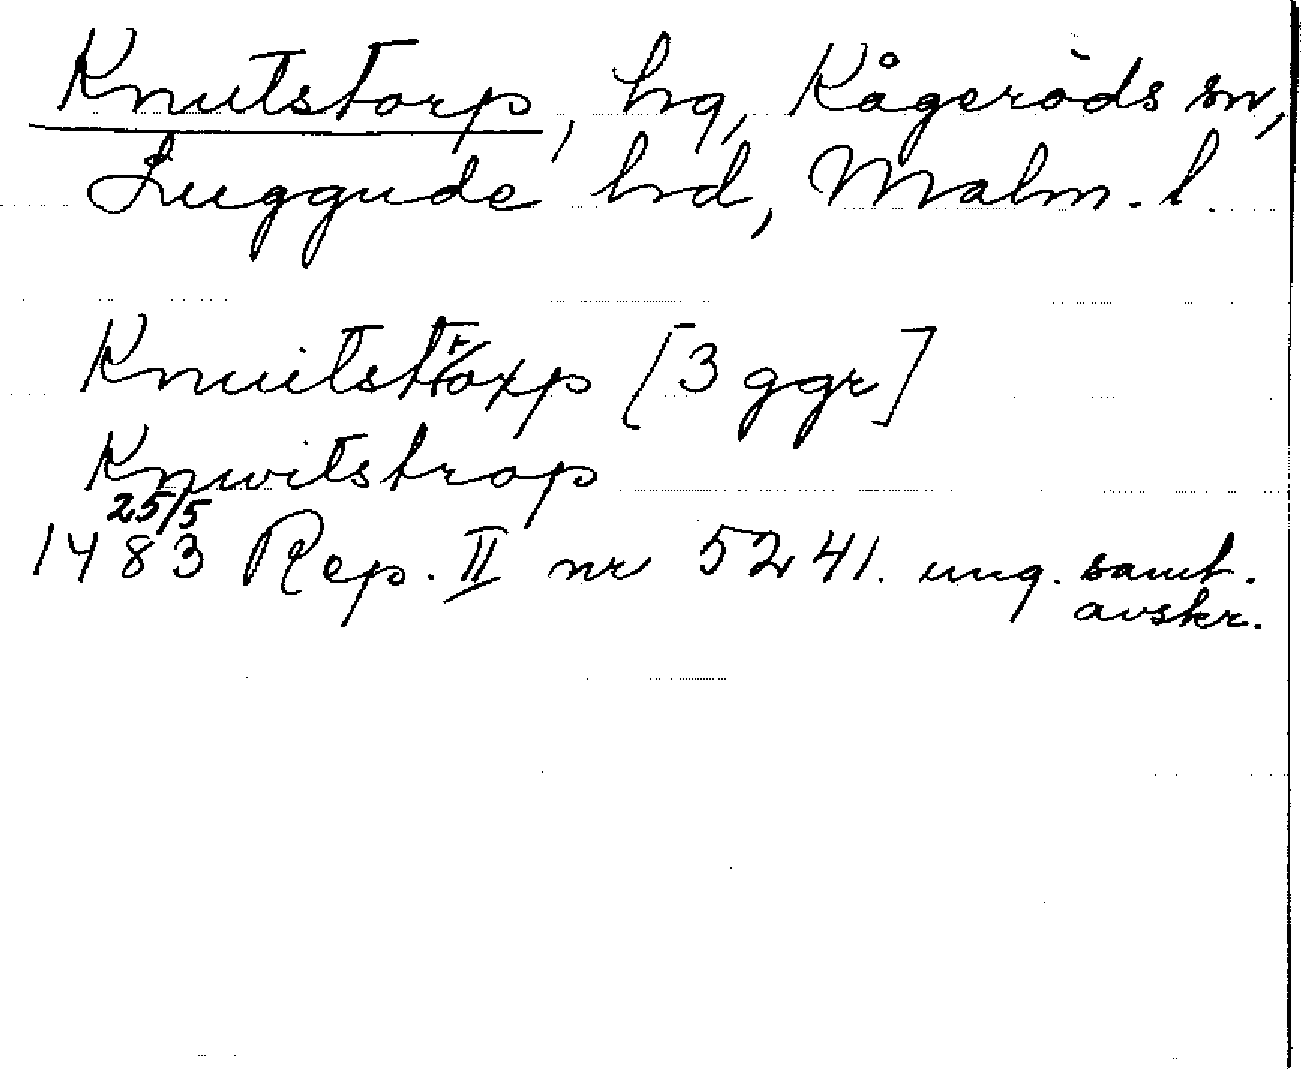 Knutstorp, hg, Kågeröds sn,
Luggude hd, Malm. l.
Knuitstrop [3 ggr]
Knwitstrop
25/5
1483 Rep. II nr 5241. ung. samt.
avskr.